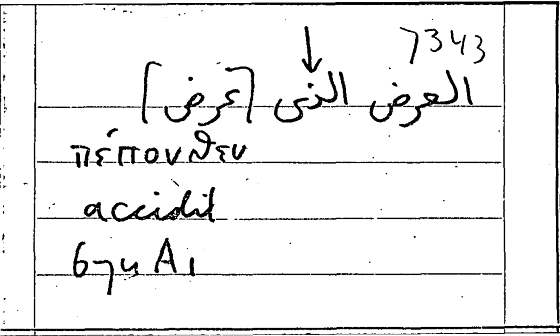 7343
العرض الذى [عرض]
πέπονθεν
accidit
67u A1